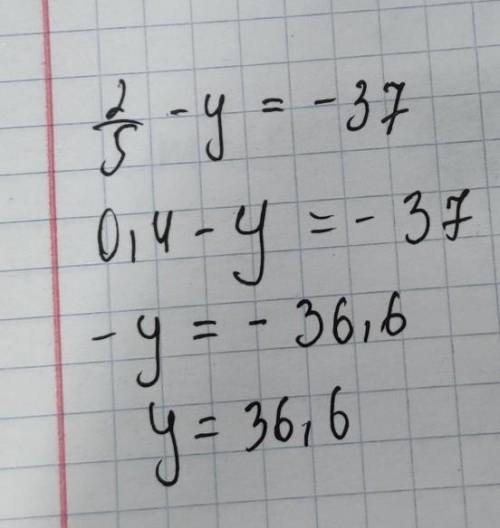 2/5 - y = -37
0,4 - y = - 37
- y = - 36,6
y = 36,6